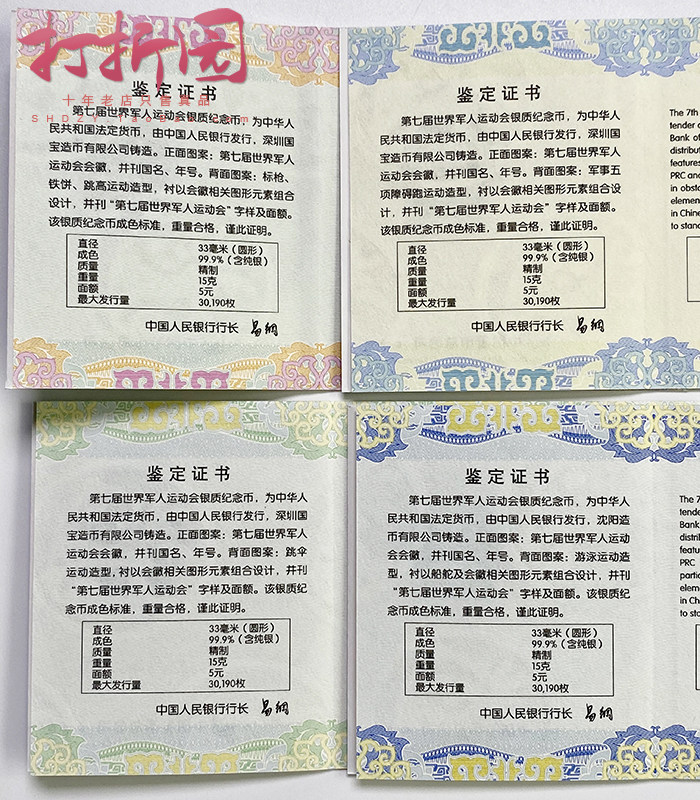 打折园
十年老店只售真品
鉴定证书
第七届世界军人运动会银质纪念币，为中华人
民共和国法定货币，由中国人民银行发行，深圳国
宝造币有限公司铸造。正面图案：第七届世界军人
运动会会徽，并刊国名、年号。背面图案：标枪、
铁饼、跳高运动造型，衬以会徽相关图形元素组合
设计，并刊“第七届世界军人运动会”字样及面额。
该银质纪念币成色标准，重量合格，谨此证明。
直径 33毫米（圆形）
成色 99.9%（含纯银）
质量 精制
重量 15克
面额 5元
最大发行量 30,190枚
中国人民银行行长 易纲
鉴定证书
第七届世界军人运动会银质纪念币，为中华人
民共和国法定货币，由中国人民银行发行，深圳国
宝造币有限公司铸造。正面图案：第七届世界军人
运动会会徽，并刊国名、年号。背面图案：军事五
项障碍跑运动造型，衬以会徽相关图形元素组合设
计，并刊“第七届世界军人运动会”字样及面额。
该银质纪念币成色标准，重量合格，谨此证明。
直径 33毫米（圆形）
成色 99.9%（含纯银）
质量 精制
重量 15克
面额 5元
最大发行量 30,190枚
中国人民银行行长 易纲
The 7th
tender o
Bank of
distribut
features
PRC and
in obsta
elemen
in Chine
to stand
鉴定证书
第七届世界军人运动会银质纪念币，为中华人
民共和国法定货币，由中国人民银行发行，深圳国
宝造币有限公司铸造。正面图案：第七届世界军人
运动会会徽，并刊国名、年号。背面图案：跳伞
运动造型，衬以会徽相关图形元素组合设计，并刊
“第七届世界军人运动会”字样及面额。该银质纪
念币成色标准，重量合格，谨此证明。
直径 33毫米（圆形）
成色 99.9%（含纯银）
质量 精制
重量 15克
面额 5元
最大发行量 30,190枚
中国人民银行行长 易纲
鉴定证书
第七届世界军人运动会银质纪念币，为中华人
民共和国法定货币，由中国人民银行发行，沈阳造
币有限公司铸造。正面图案：第七届世界军人运动
会会徽，并刊国名、年号。背面图案：游泳运动造
型，衬以船舵及会徽相关图形元素组合设计，并刊
“第七届世界军人运动会”字样及面额。该银质纪
念币成色标准，重量合格，谨此证明。
直径 33毫米（圆形）
成色 99.9%（含纯银）
质量 精制
重量 15克
面额 5元
最大发行量 30,190枚
中国人民银行行长 易纲
The 7
tende
Bank
distri
featu
PRC
parti
elem
in Ch
to sta